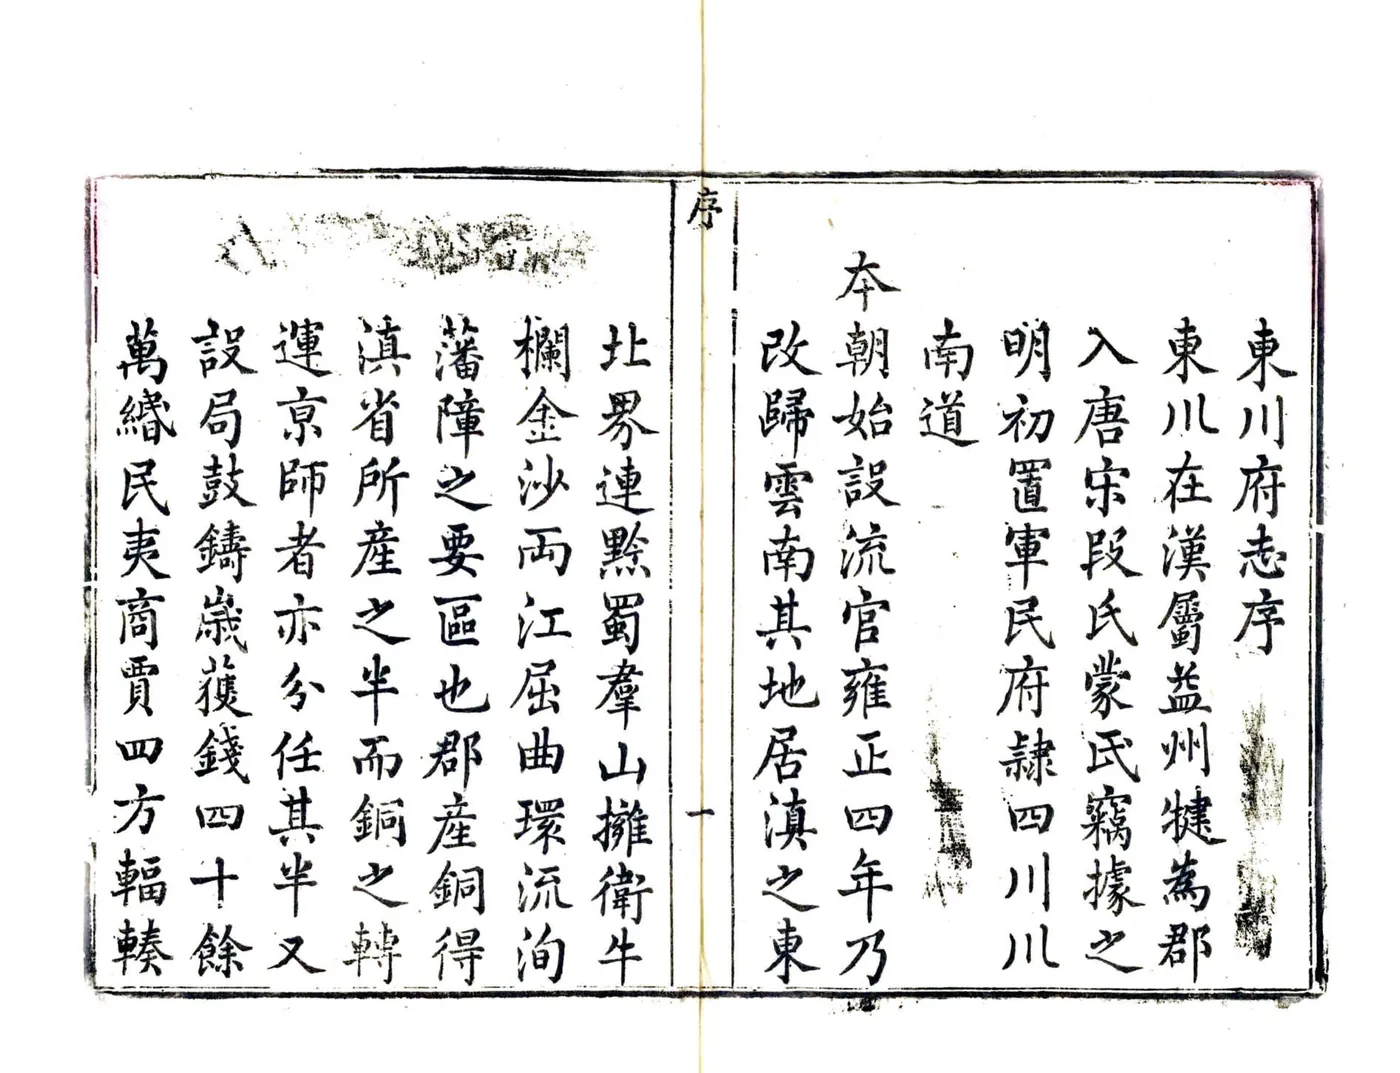 東川府志序
東川在漢屬益州犍為郡
入唐宋段氏蒙氏竊據之
明初置軍民府隸四川川
南道
本朝始設流官雍正四年乃
改歸雲南其地居滇之東
序
一
北界連黔蜀羣山擁衛牛
欄金沙兩江屈曲環流洵
藩障之要區也郡產銅得
滇省所產之半而銅之轉
運京師者亦分任其半又
設局鼓鑄歲獲錢四十餘
萬緡民夷商賈四方輻輳